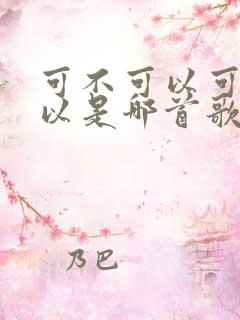 可不可以可
以是哪首歌
乃巴